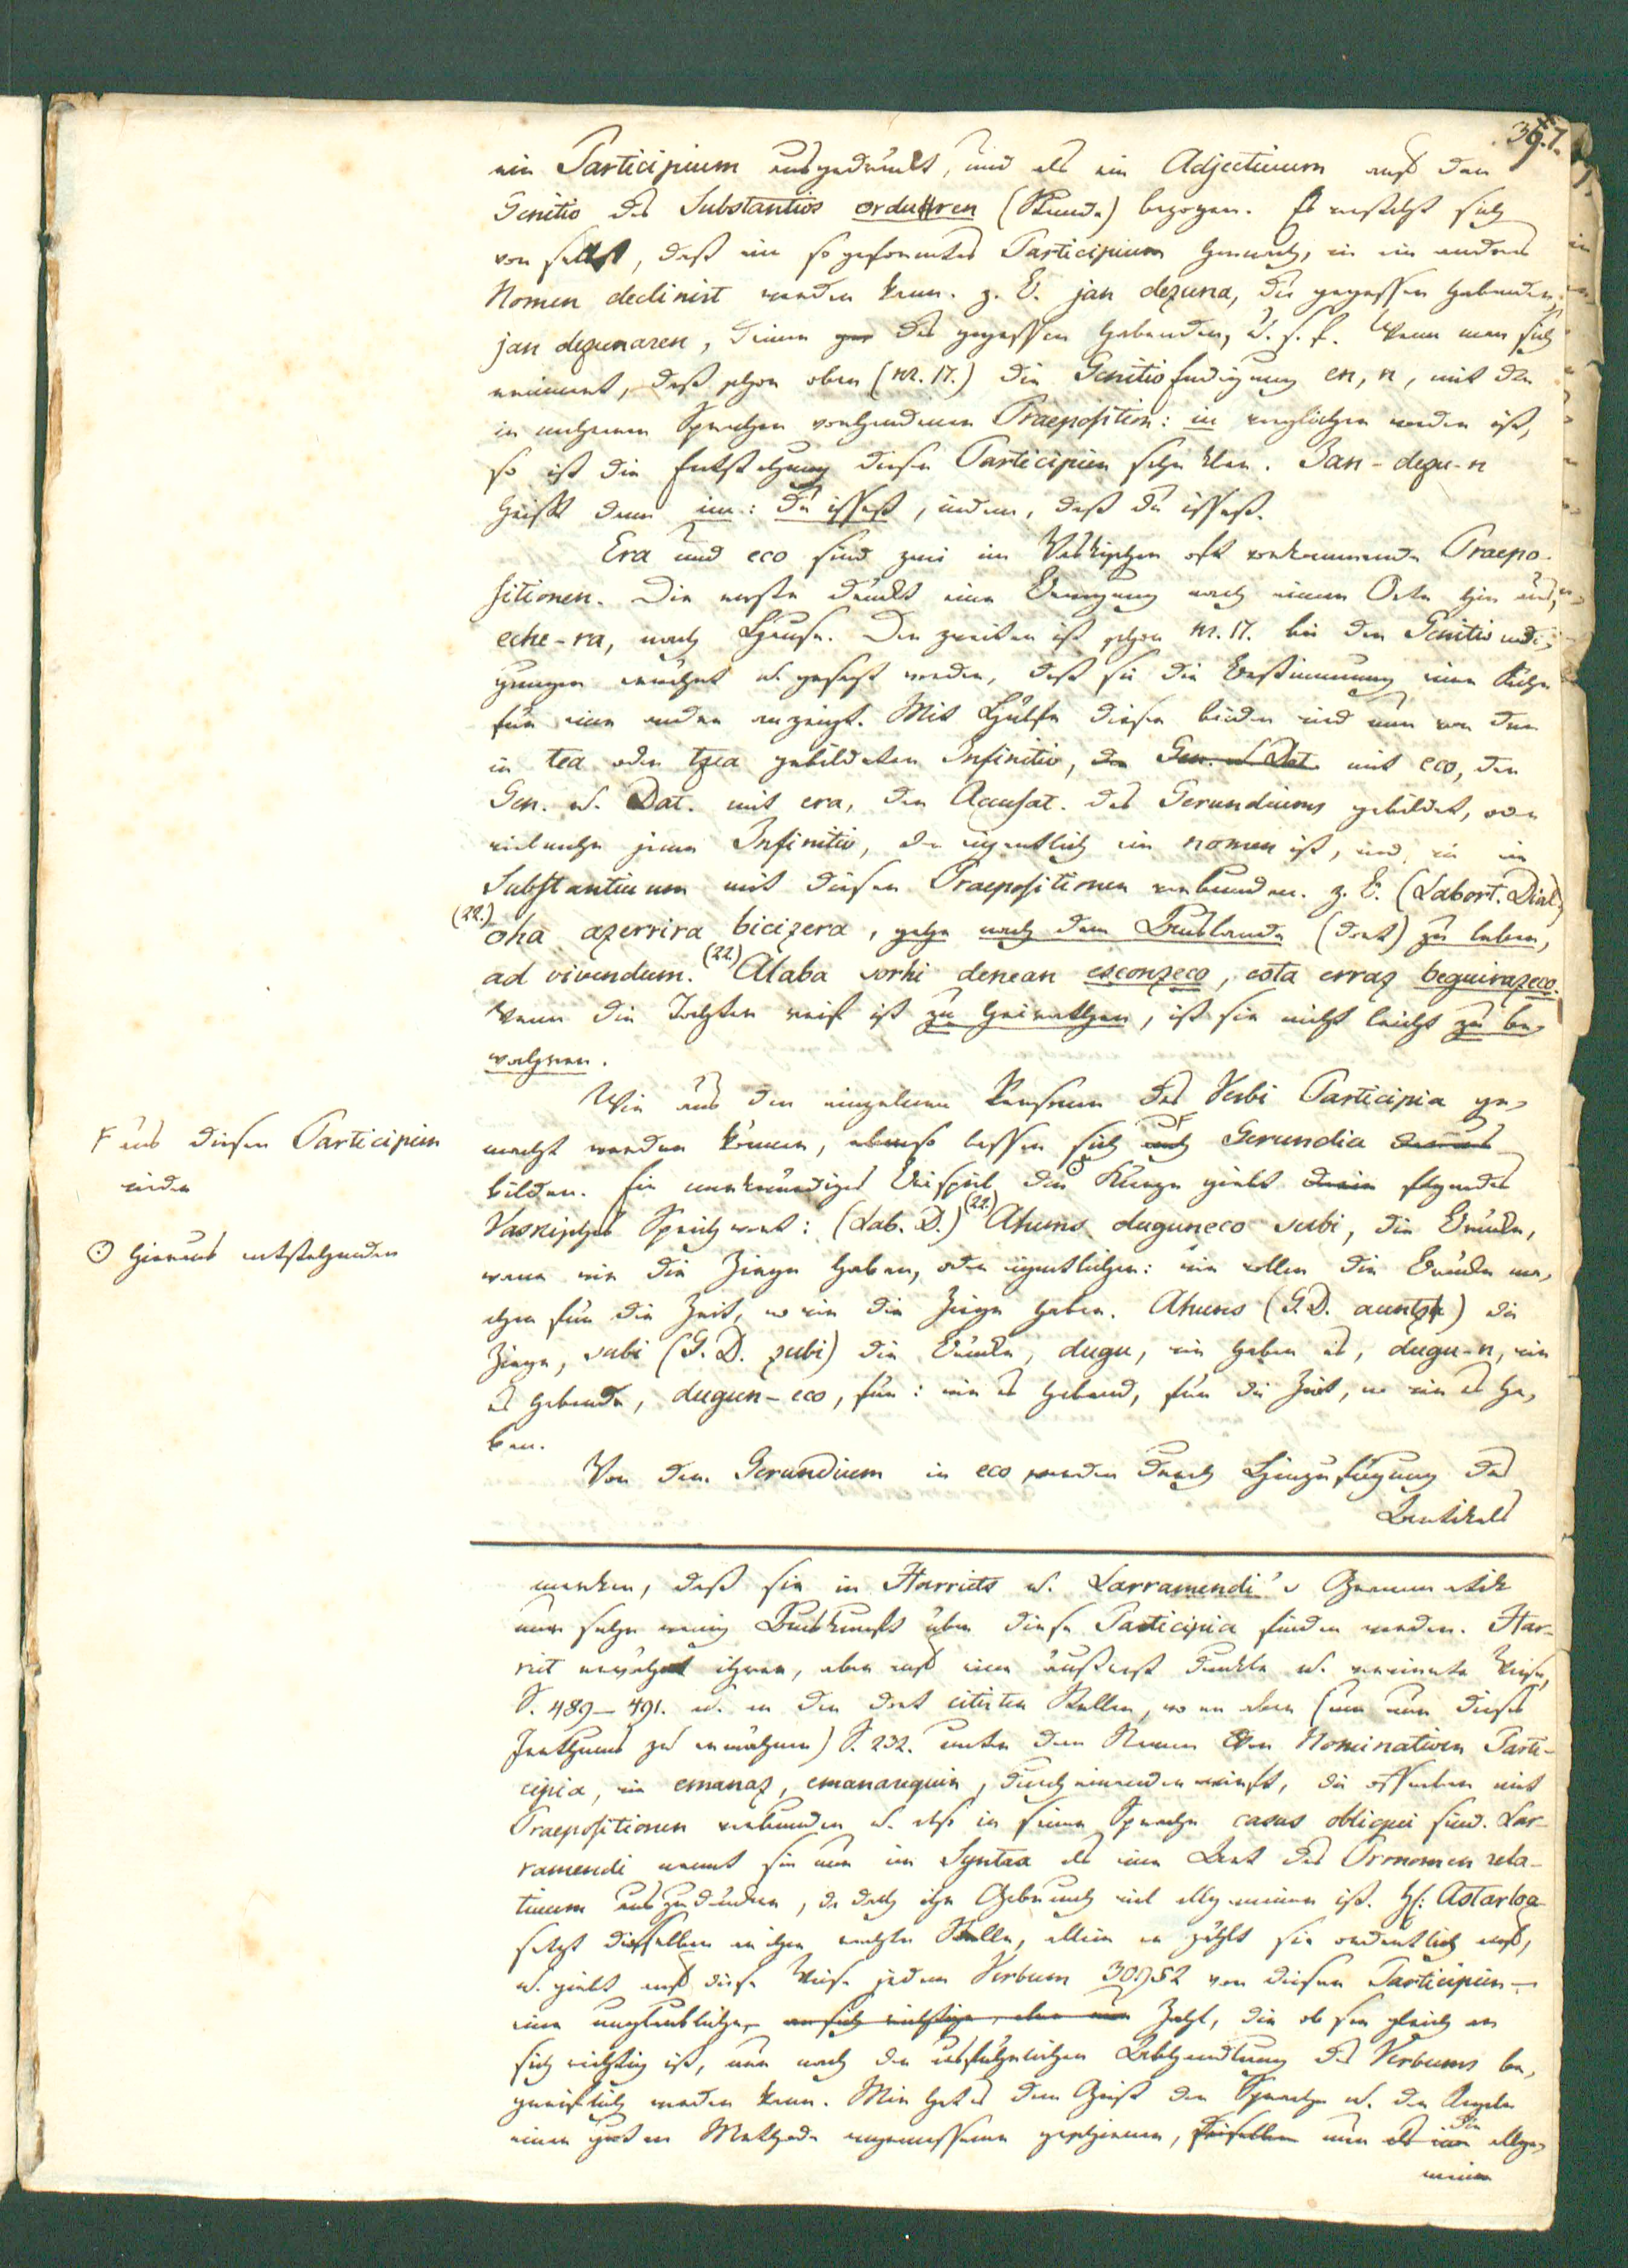 39.7.
ein Participium ausgedrückt, und als ein Adjectivum auf den
Genitiv des Substantivs orduren (Stunde) bezogen. Es versteht sich
von selbst, daß ein so geformtes Participium hernach, wie ein andres
Nomen declinirt werden kann. z. E. jan dezuna, die gegessen habenden,
jan dezunaren, des gegessen habenden, u. s. f. Wenn man sich
erinnert, daß schon oben (nr. 17.) die Genitivendigung en, n, mit der
in mehreren Sprachen vorhandenen Praeposition: in verglichen worden ist,
so ist die Entstehung dieser Participien sehr klar. Jan-dezu-n
heißt dann im: du issest, indem, daß du issest.
Era und eco sind zwei im Vaskischen oft vorkommende Praepo-
sitionen. Die erste drückt eine Bewegung nach einem Orte hin aus,
eche-ra, nach Hause. Der zweiten ist schon nr. 17. bei den Genitivendi-
gungen erwähnt u. gesagt worden, daß sie die Bestimmung einer Sache
für eine andre anzeigt. Mit Hülfe dieser beiden wird nun von dem
in tea oder tzea gebildeten Infinitiv, der Gen. u. Dat. mit eco, der
Gen. u. Dat. mit era, der Accusat. des Gerundiums gebildet, oder
vielmehr jener Infinitiv, der eigentlich ein nomen ist, wird, wie ein
Substantivum mit diesen Praepositionen verbunden. z. E. (Labort. Dial.)
(22.) oha azerrira bicizera, gehe nach dem Auslande (dort) zu leben,
ad vivendum. (22.) Alaba sorhi denean esconzeco, esta erraz beguirazeco.
Wenn die Tochter reif ist zu heirathen, ist sie nicht leicht zu be-
wahren.
Wie aus den einzelnen Personen des Verbi Participia ge-
macht werden können, ebenso lassen sich auch Gerundia daraus
bilden. Ein merkwürdiges Beispiel der Kürze giebt darin folgendes
Vaskisches Sprichwort: (Lab. D.) (22.) Ahuns duguneco subi, die Brücke,
wenn wir die Ziege haben, oder eigentlicher: wir wollen die Brücke ma-
chen für die Zeit, wo wir die Ziege haben. Ahuns (G. D. auntza) die
Ziege, subi (G. D. zubi) die Brücke, dugu, wir haben es, dugu-n, wir
es habende, dugun-eco, für: wir es habend, für die Zeit, wo wir es ha-
ben.
Von dem Gerundium in eco werden durch Hinzufügung des
Artikels
F aus diesen Participien
wieder
⊙ hieraus entstehenden
merken, daß sie in Harriets u. Larramendi's Grammatik
nur sehr wenig Auskunft über diese Participia finden werden. Har-
riet erwähnt ihrer, aber auf eine äußerst dunkle u. verwirrte Weise,
S. 489-491. u. an den dort citirten Stellen, wo er aber (um nur dieses
Irrthums zu erwähnen) S. 232. unter dem Namen der Nominativen Parti-
cipia, wie emanaz, emanarequin, durcheinanderwirft, die offenbar mit
Praepositionen verbunden u. also in seiner Sprache casus obliqui sind. Lar-
ramendi nennt sie nur im Syntax als eine Art das Pronomen rela-
tivum auszudrücken, da doch ihr Gebrauch viel allgemeiner ist. H: Astarloa
setzt dieselben an ihre rechte Stelle, allein er zählt sie ordentlich auf,
u. giebt auf diese Weise jedem Verbum 30,952 von diesen Participien -
eine unglaubliche, an sich richtige, aber nur Zahl, die ob sie gleich an
sich richtig ist, nur nach der ausführlichen Abhandlung des Verbums be-
greiflich werden kann. Mir hat es dem Geist der Sprache u. den Regeln
einer guten Methode angemessener geschienen, dieselben nur als eine allge-
die
meine